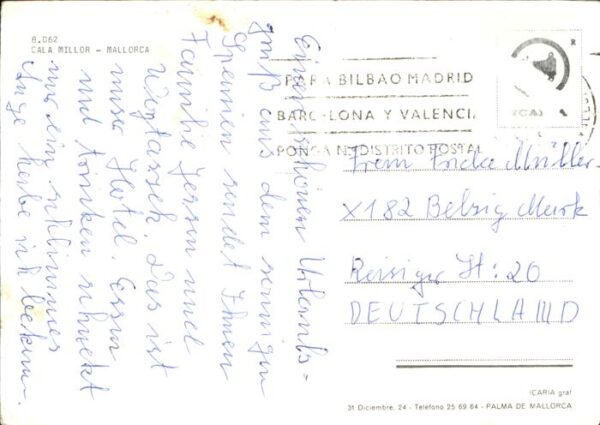 8.D62
CALA MILLOR - MALLORCA
Einen schönen Urlaubs=
gruß aus dem sonnigen
Spanien sendet Ihnen
Familie Jesson und
Das ist
unser Hotel. Essen
und trinken schmeckt
nur ein schlimmes
Auge habe ich bekom.
PARA BILBAO MADRID
BARCELONA Y VALENCIA
PONGA Nº DISTRITO POSTAL
Fricke Müller
X182 Belzig Mark
Reisiger St: 20
DEUTSCHLAND
ICARIA graf
31 Diciembre, 24 - Teléfono 25 69 64 - PALMA DE MALLORCA